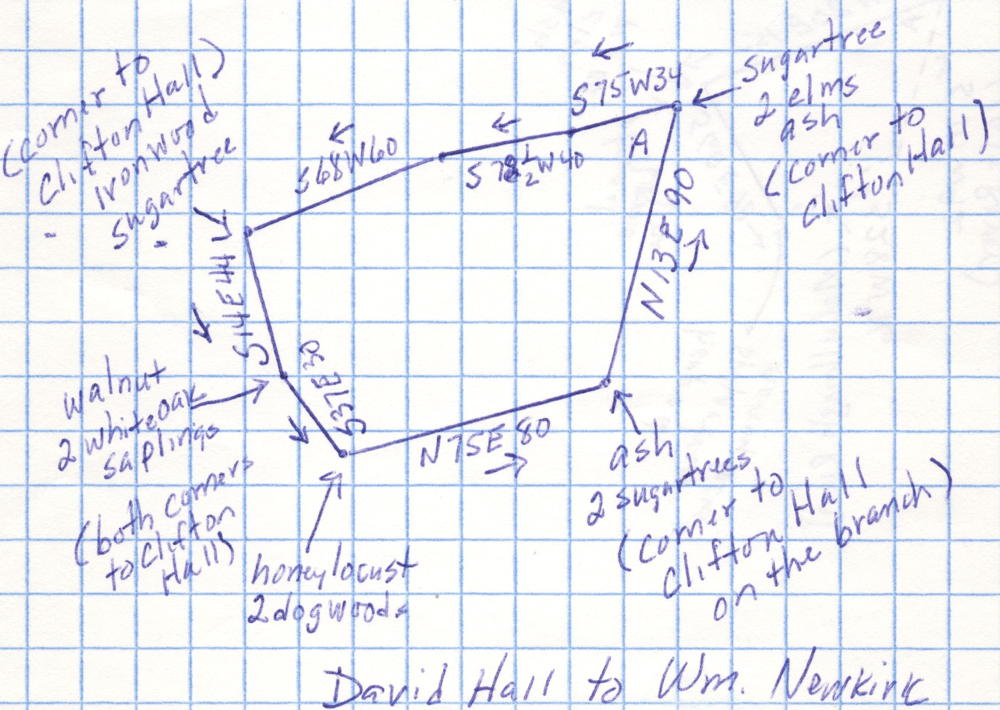 (corner to
Clifton Hall)
Ironwood
sugartree
S68W60
S75W34
A
sugartree
2 elms
ash
(corner to
Clifton Hall)
N13E90
S14E44
S37E30
walnut
2 whiteoak
saplings
(both corners
to Clifton
Hall)
honeylocust
2 dogwoods
N75E 80
ash
2 sugartrees
(corner to
Clifton Hall
on the branch)
David Hall to Wm. Newkirk